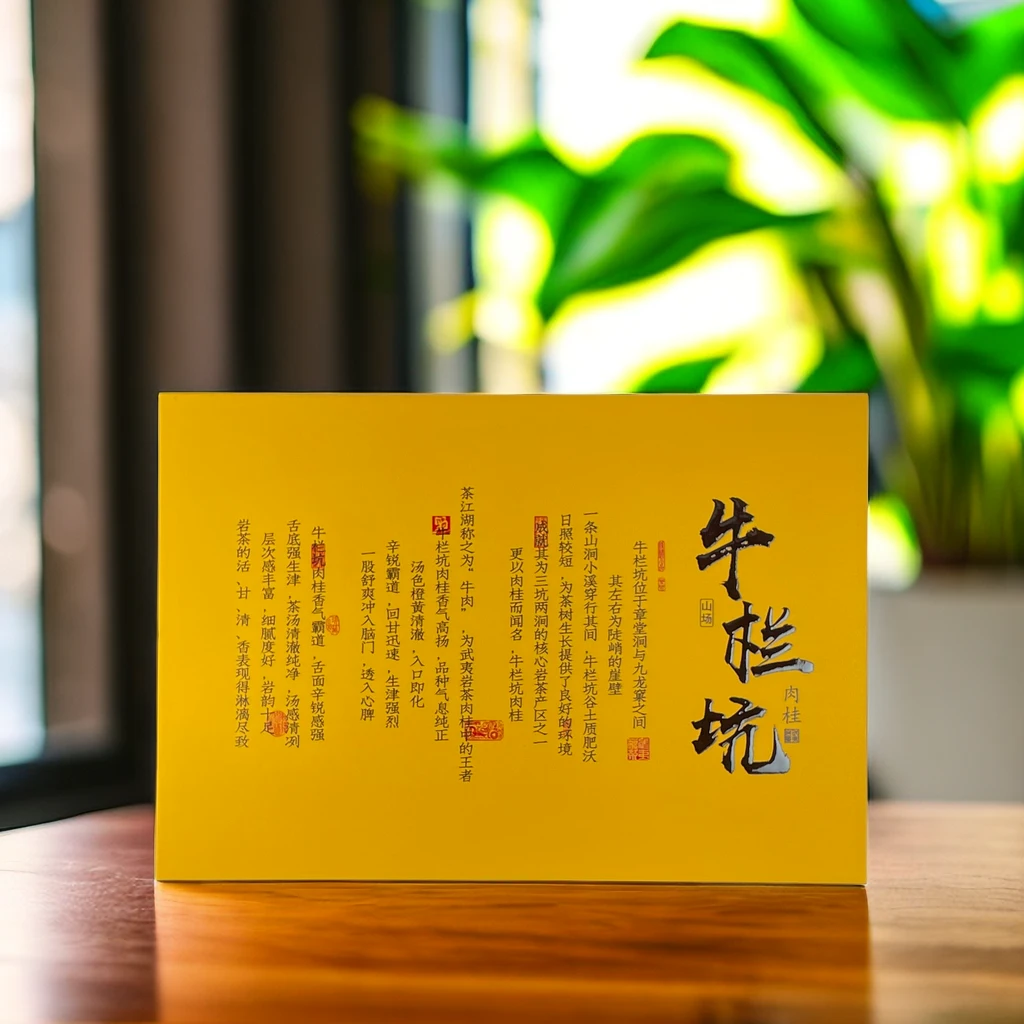 牛栏坑
山场
肉桂
牛栏坑位于章堂涧与九龙窠之间
其左右为陡峭的崖壁
一条山涧小溪穿行其间,牛栏坑谷土质肥沃
日照较短,为茶树生长提供了良好的环境
成就其为三坑两涧的核心岩茶产区之一
更以肉桂而闻名,牛栏坑肉桂
茶江湖称之为“牛肉”,为武夷岩茶肉桂中的王者
牛栏坑肉桂香气高扬,品种气息纯正
汤色橙黄清澈,入口即化
辛锐霸道,回甘迅速,生津强烈
一股舒爽冲入脑门,透入心脾
牛栏坑肉桂香气霸道,舌面辛锐感强
舌底强生津,茶汤清澈纯净,汤感清冽
层次感丰富,细腻度好,岩韵十足
岩茶的活、甘、清、香表现得淋漓尽致